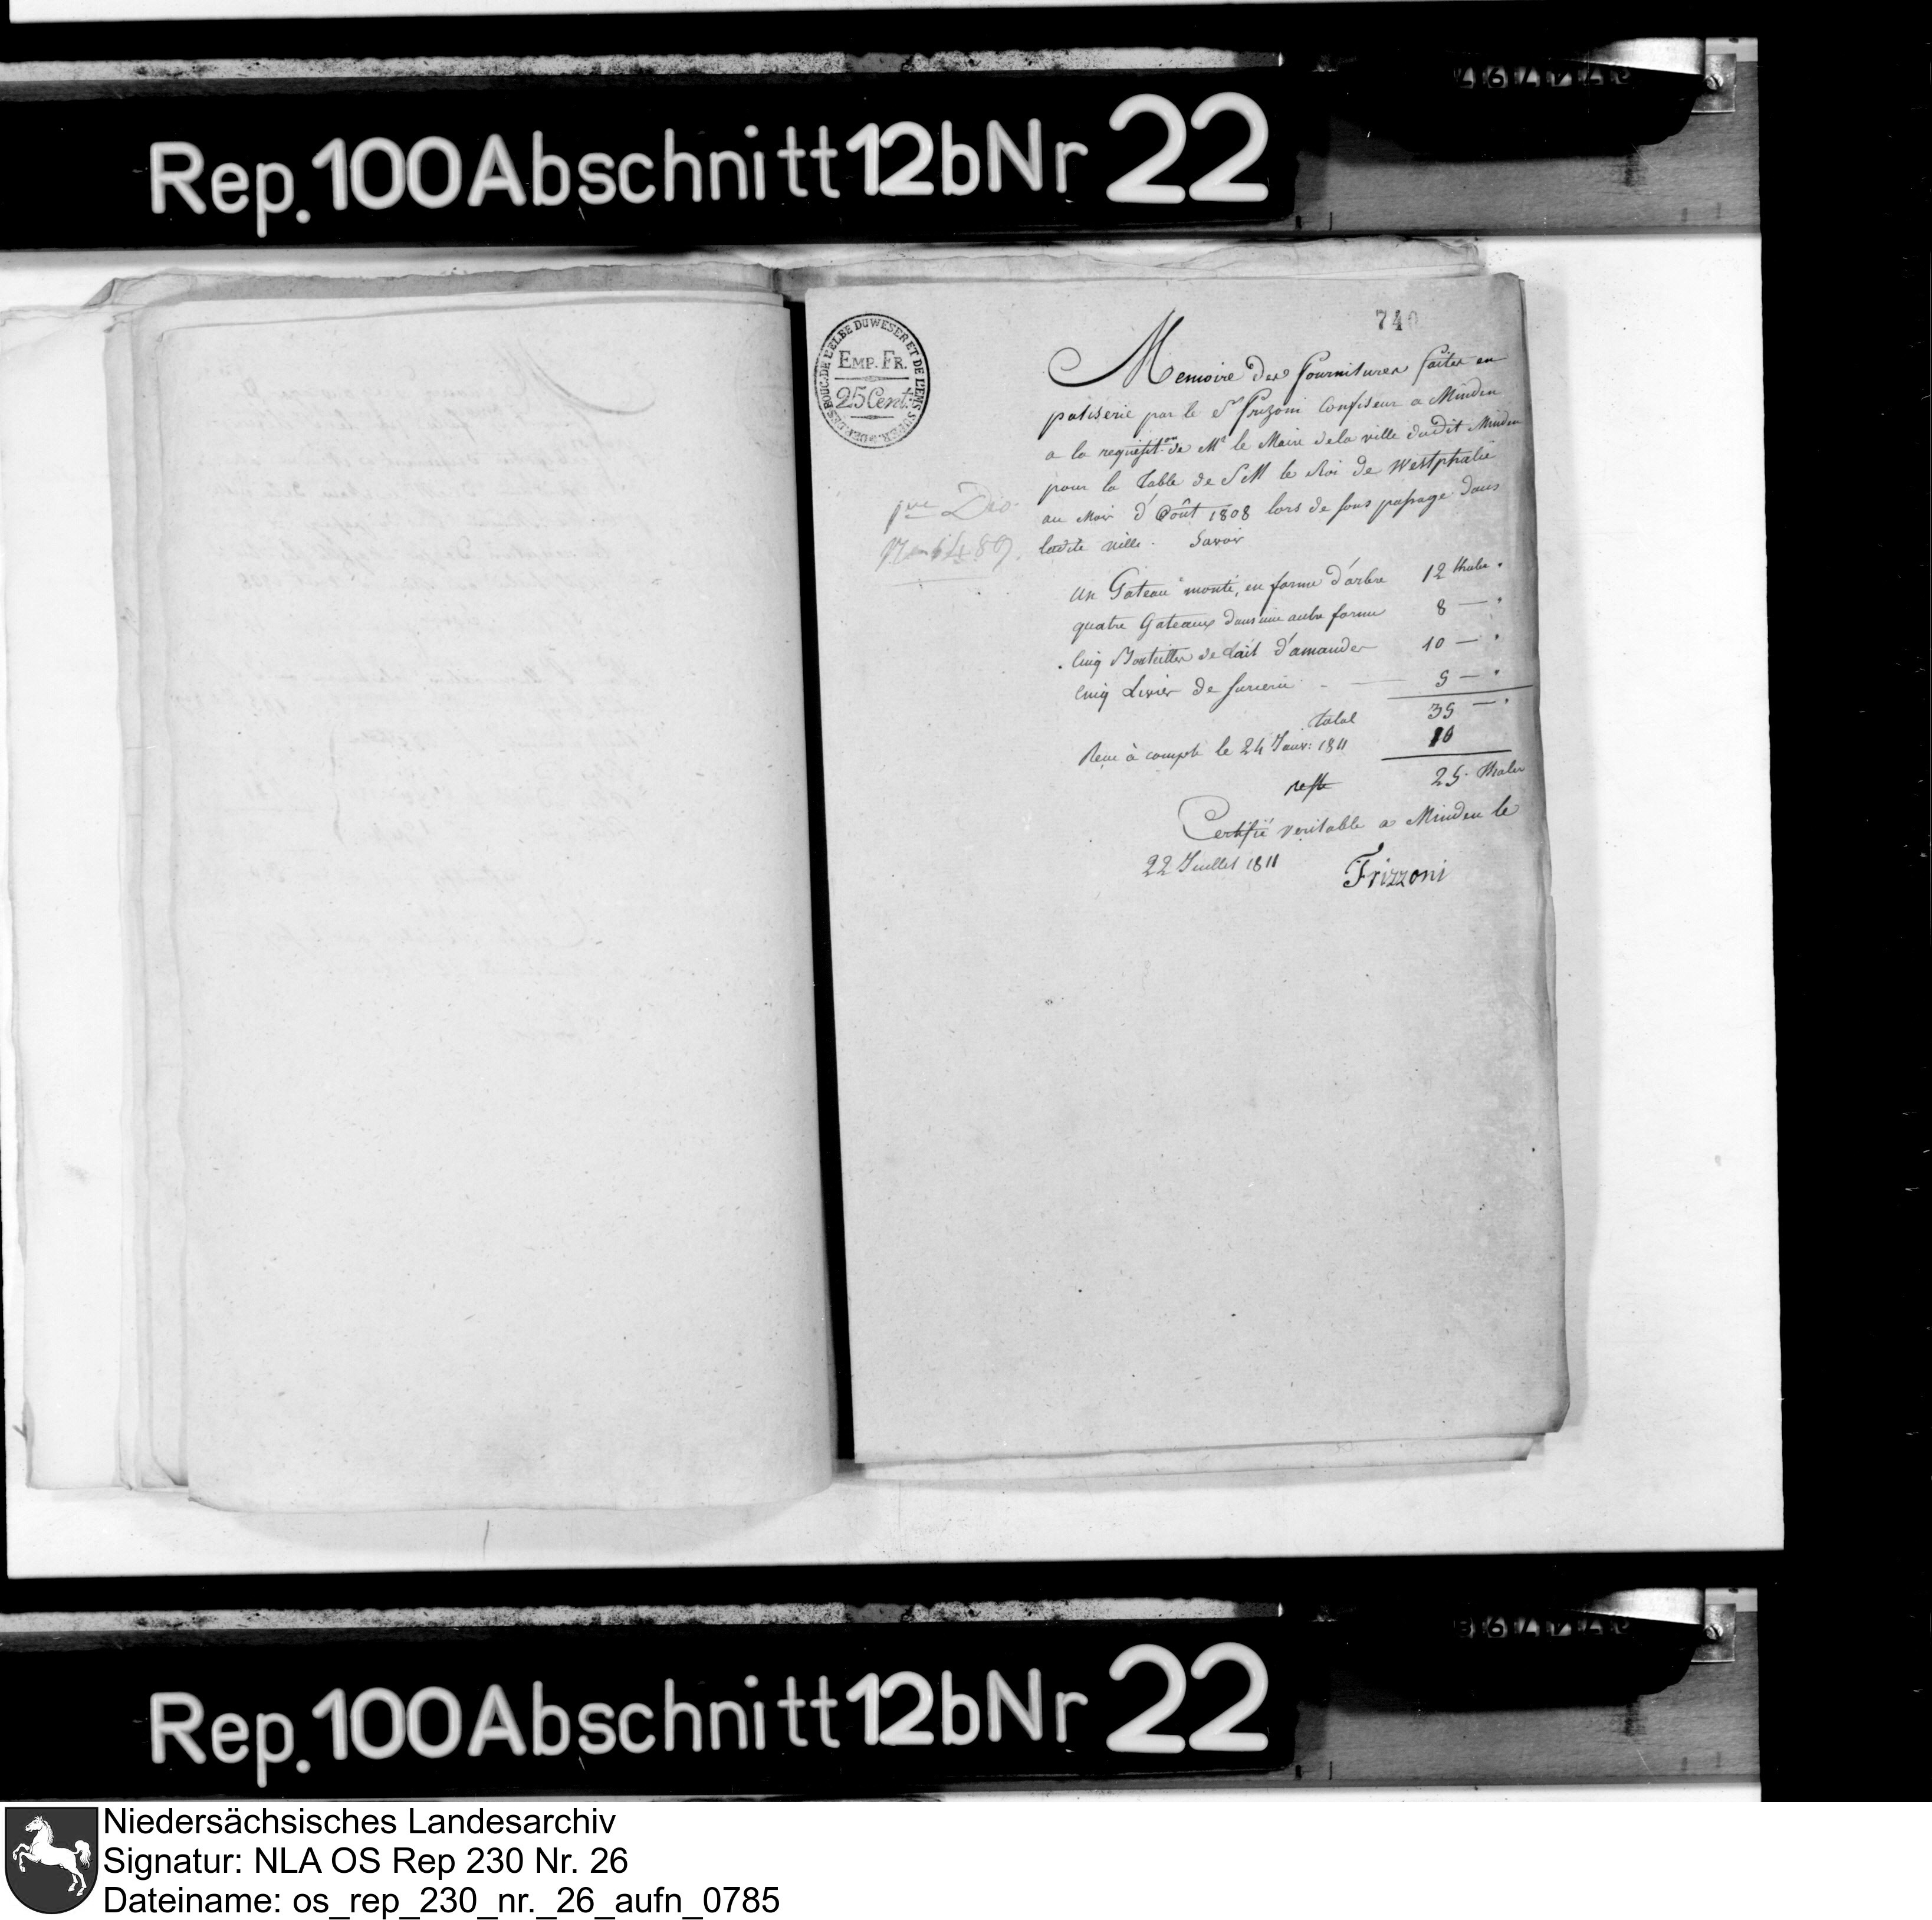 Rep. 100 Abschnitt 12b Nr 22
740
DEP. DES BOUC. DE L'ELBE DU WESER ET DE L'EMS SUPER.
EMP. FR.
25 Cent.
Memoire des fournitures faites en
patiserie par le Sr Frizoni Confiseur a Minden
a la requisiton de Mr le Maire de la ville dudit Minden
pour la Table de S M le Roi de Westphalie
au Mois d'Août 1808 lors de sons passage dans
ladite ville. Savoir
1ere Div.
N en 6489.
Un Gateau monté, en forme d'arbre 12 thaler "
quatre Gateaux dans une autre forme 8 — "
Cinq Bouteilles de Lait d'amandes 10 — "
Cinq Livres de sucrerie - — 5 — "
Total 35 — "
Recu à compte le 24 Janv: 1811 10
reste 25. thaler
Certifié veritable a Minden le
22 Juillet 1811 Frizzoni
Rep. 100 Abschnitt 12b Nr 22
Niedersächsisches Landesarchiv
Signatur: NLA OS Rep 230 Nr. 26
Dateiname: os_rep_230_nr._26_aufn_0785